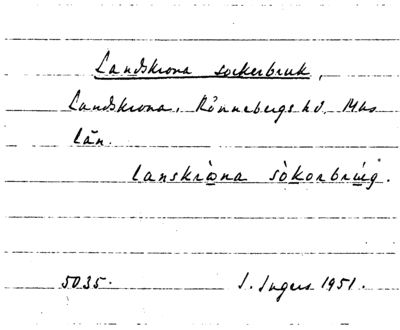 Landskrona sockerbruk,
Landskrona, Rönnebergs hd. Mas
län.
lanskròna sòkorbrúg.
5035. I. Ingers 1951.